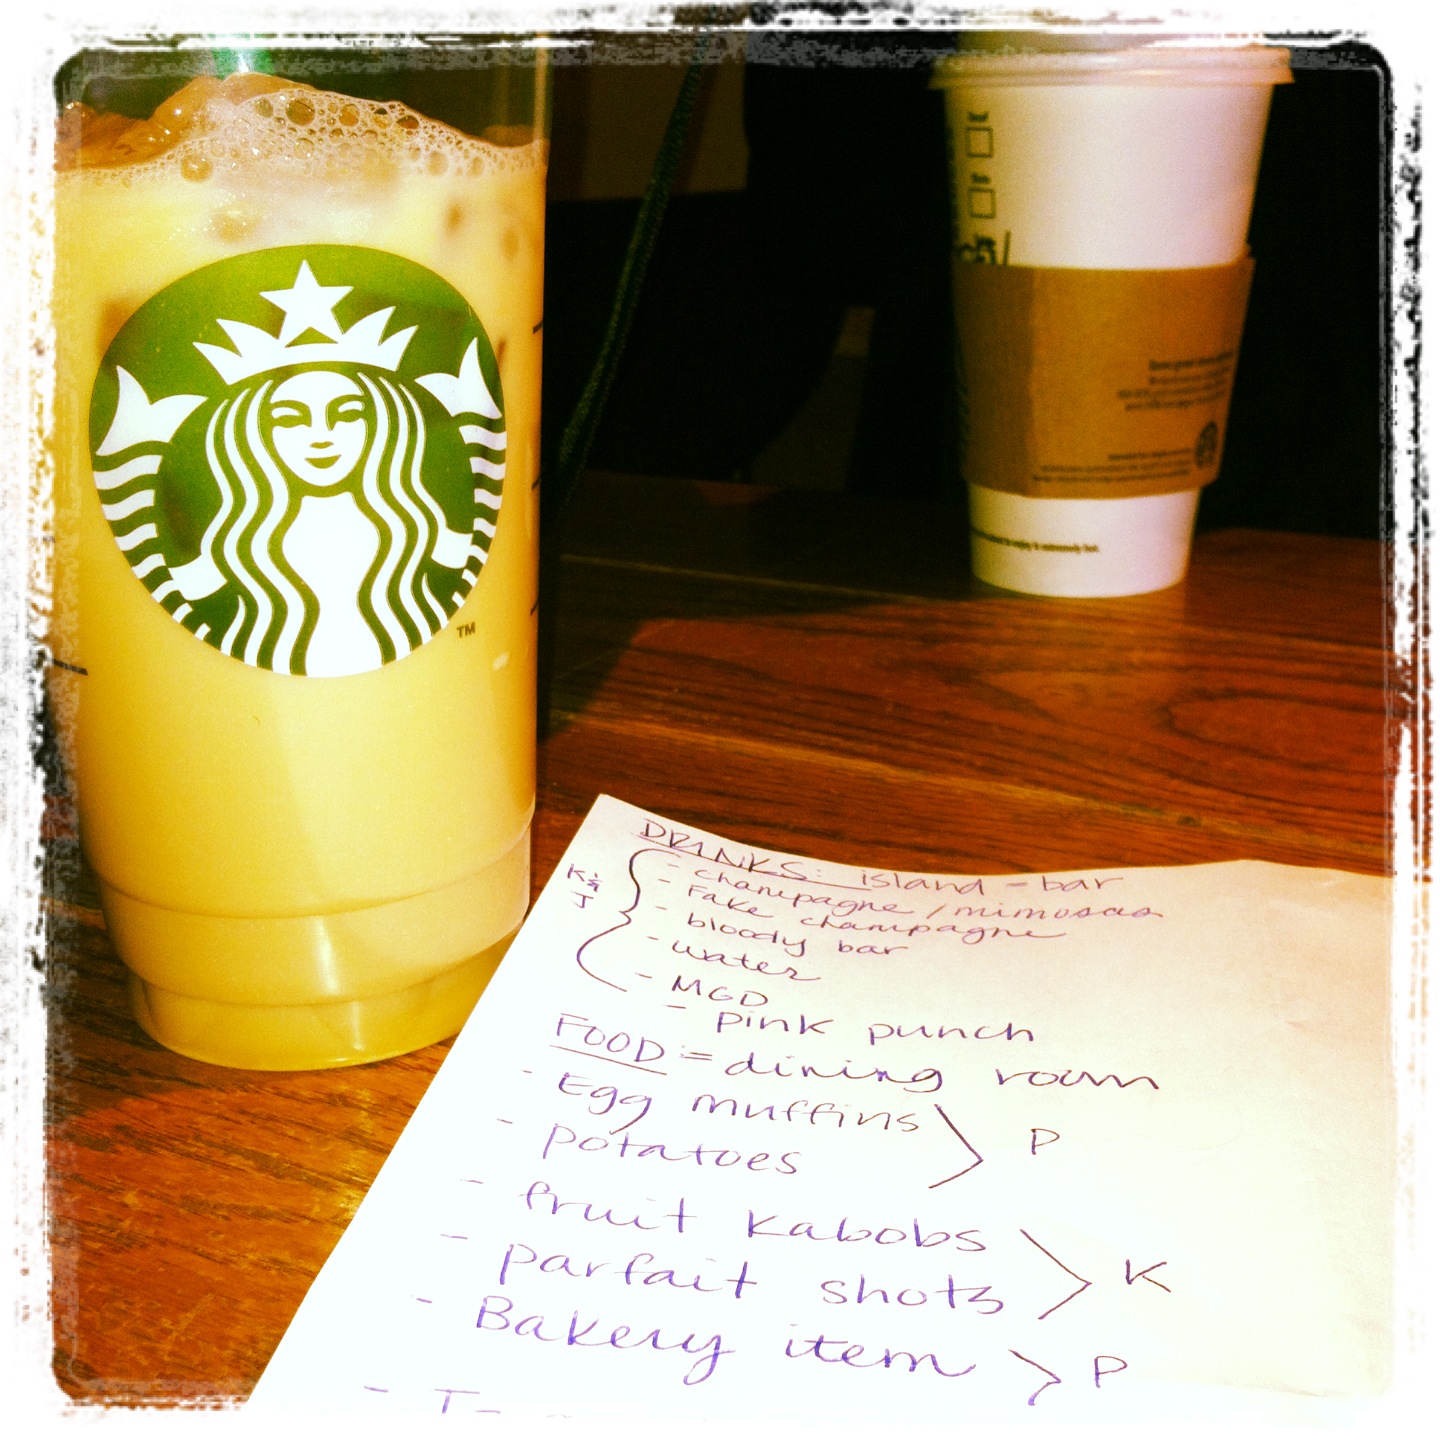 TM
DRINKS: island - bar
- champagne / mimosas
- Fake champagne
- bloody bar
- water
- MGD
- pink punch
K &
J
FOOD = dining room
- Egg muffins
- potatoes
P
- fruit kabobs
- parfait shots
K
- Bakery item
P